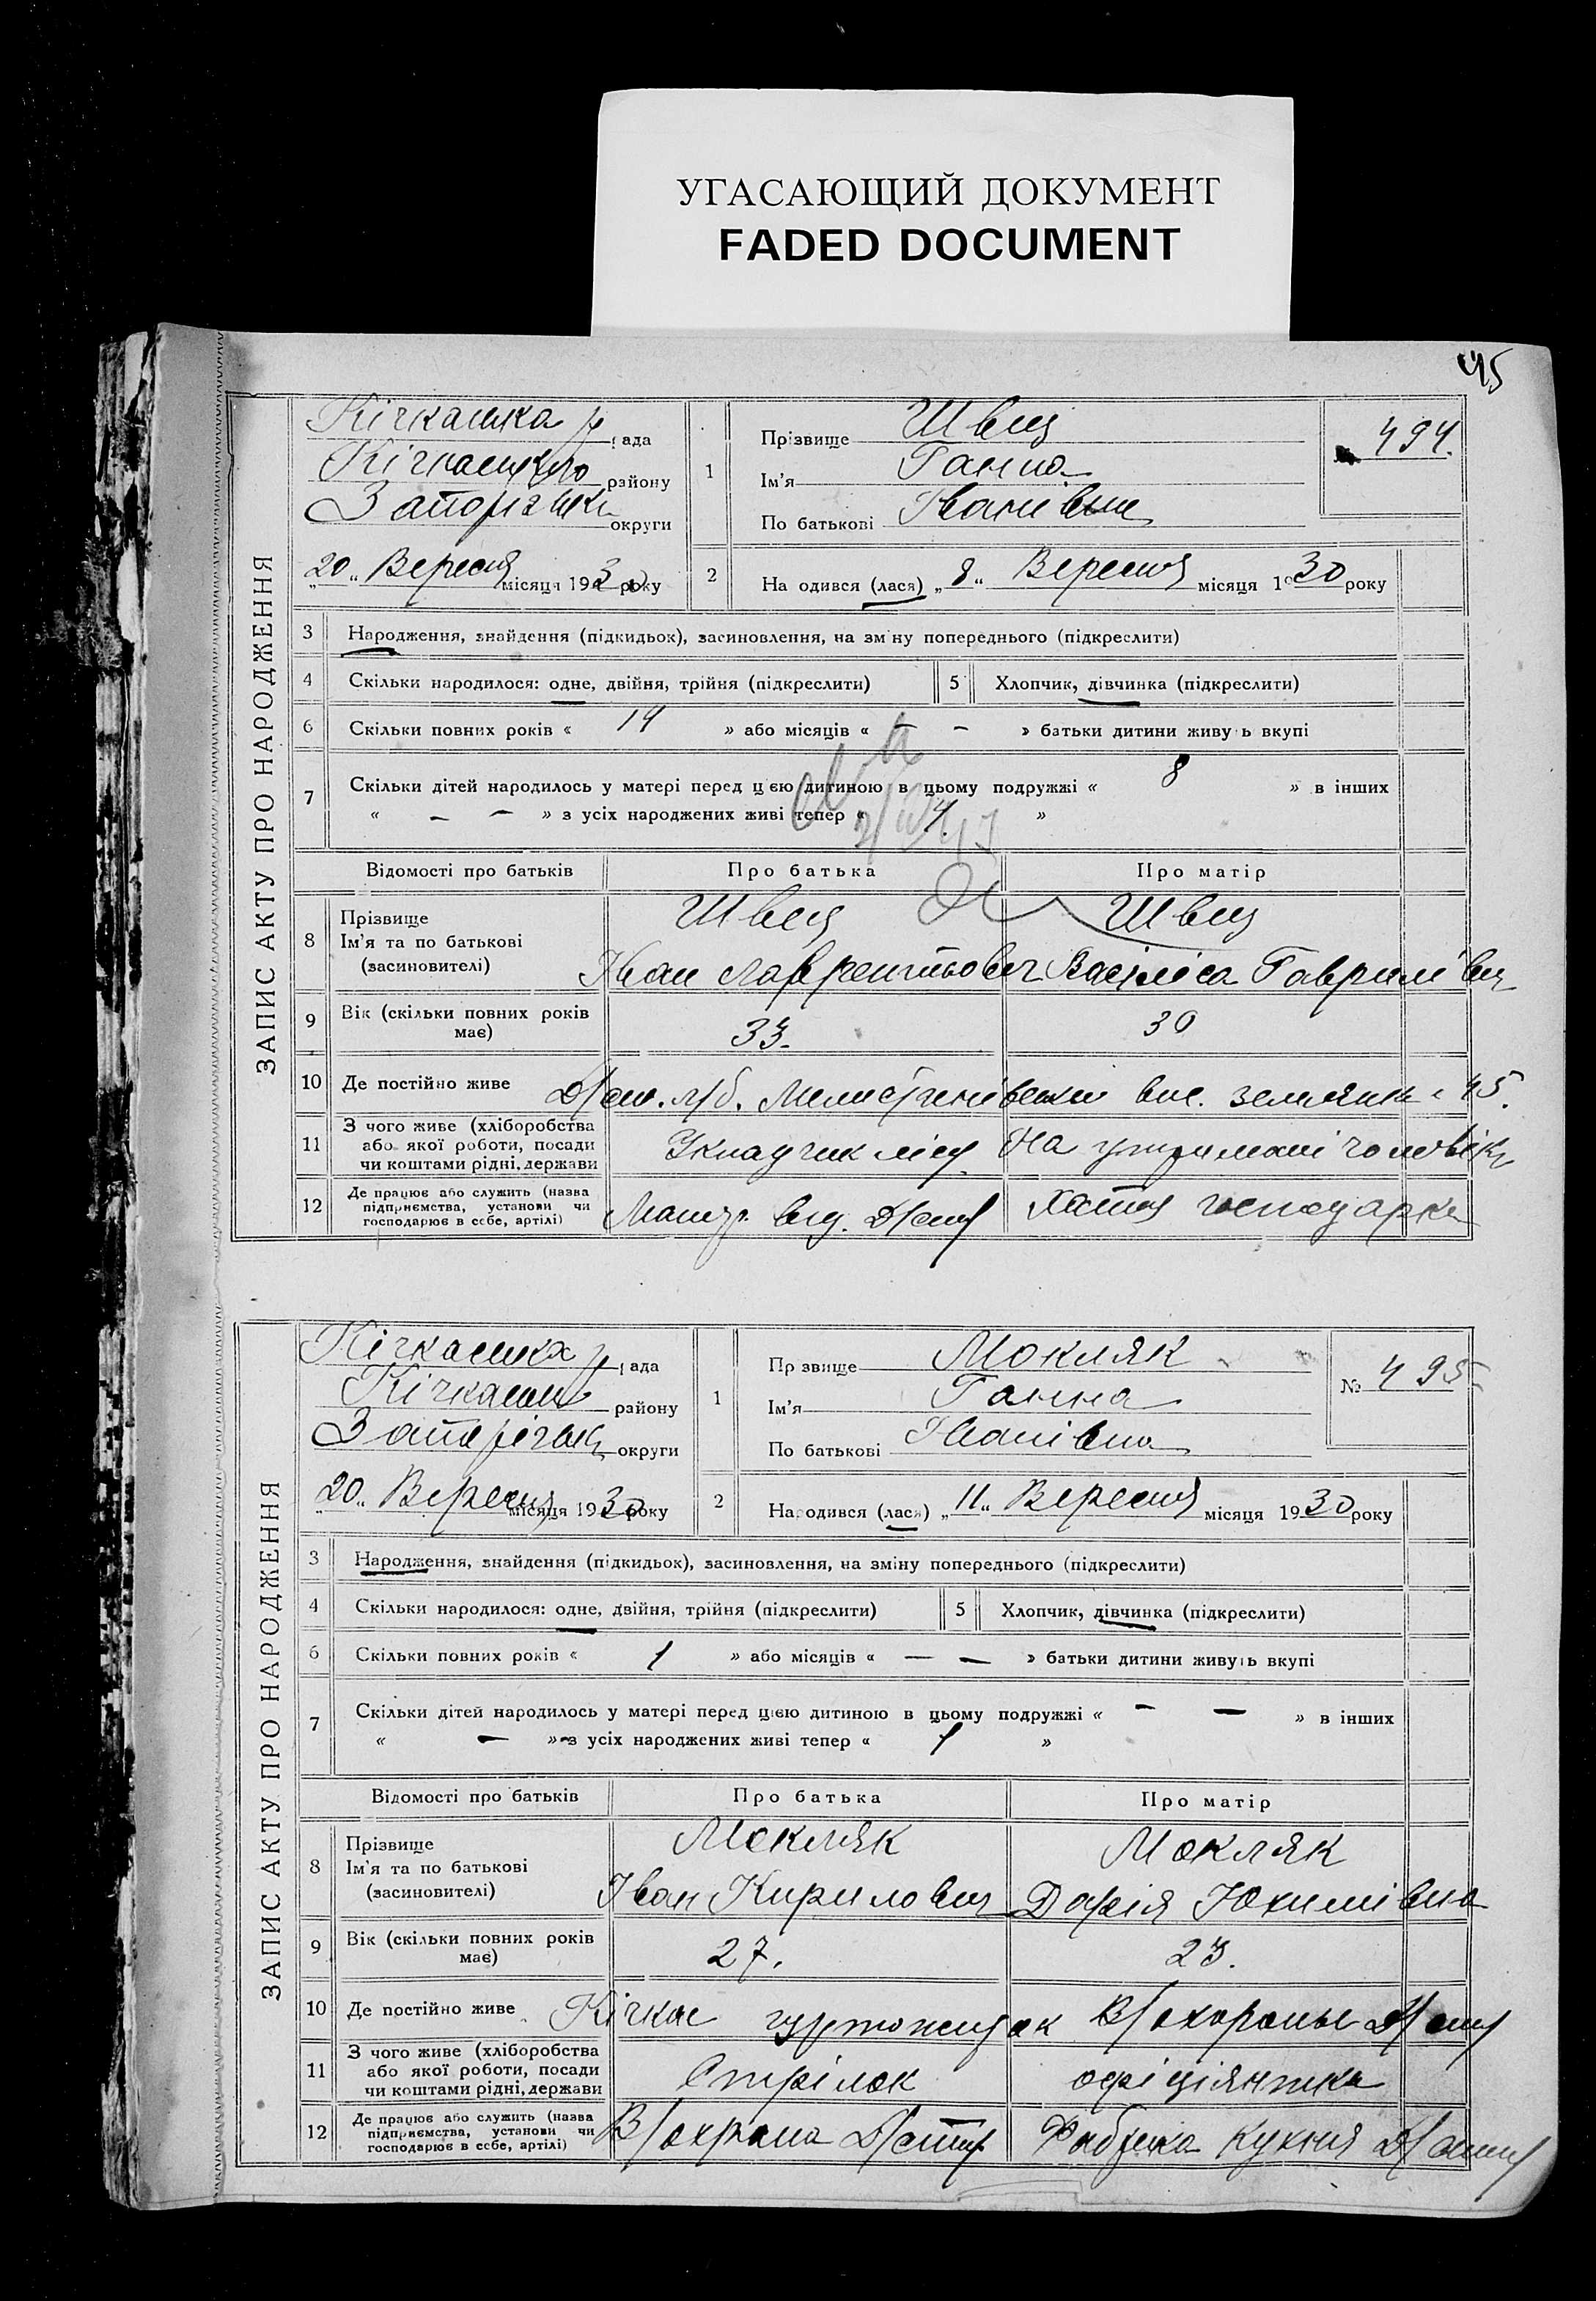 УГАСАЮЩИЙ ДОКУМЕНТ
FADED DOCUMENT
45
ЗАПИС АКТУ ПРО НАРОДЖЕННЯ
Кічкаська р рада
Кічкаського району
Запорізьк округи
„20„ Вересня місяця 1930 року
1
Прізвище Швец
Ім'я Ганна
По батькові Іванівна
№ 494.
2 На одився (лася) „8„ Вересня місяця 1930 року
3 Народження, знайдення (підкидьок), засиновлення, на зміну попереднього (підкреслити)
4 Скільки народилося: одне, двійня, трійня (підкреслити) 5 Хлопчик, дівчинка (підкреслити)
6 Скільки повних років « 14 » або місяців « — — » батьки дитини живуть вкупі
7 Скільки дітей народилось у матері перед цією дитиною в цьому подружжі « 8 » в інших
« — — » з усіх народжених живі тепер « 4. »
Відомості про батьків Про батька Про матір
8 Прізвище Швец Швец
Ім'я та по батькові Іван Лаврентьович Васіліса Гаврилівн
(засиновителі)
9 Вік (скільки повних років має) 33. 30
10 Де постійно живе Д/ст. л/б. вис. землянк 45.
11 З чого живе (хліборобства або якої роботи, посади чи коштами рідні, держави Укладчик ліс На утримані чоловік
12 Де працює або служить (назва підприємства, установи чи господарює в себе, артілі) від. Хатня господарка
ЗАПИС АКТУ ПРО НАРОДЖЕННЯ
Кічкаська р рада
Кічкаськ району
Запорізьк округи
„20„ Вересня місяця 1930 року
1
Пр звище Мокляк
Ім'я Ганна
По батькові Іванівна
№ 495
2 Народився (лася) „11„ Вересня місяця 1930 року
3 Народження, знайдення (підкидьок), засиновлення, на зміну попереднього (підкреслити)
4 Скільки народилося: одне, двійня, трійня (підкреслити) 5 Хлопчик, дівчинка (підкреслити)
6 Скільки повних років « 1 » або місяців « — — » батьки дитини живуть вкупі
7 Скільки дітей народилось у матері перед цією дитиною в цьому подружжі « — — » в інших
« — » з усіх народжених живі тепер « 1 »
Відомості про батьків Про батька Про матір
8 Прізвище Мокляк Мокляк
Ім'я та по батькові Іван Кирилович Дарія Юхимівна
(засиновителі)
9 Вік (скільки повних років має) 27. 23.
10 Де постійно живе Кічкас гуртожиток В/охороны
11 З чого живе (хліборобства або якої роботи, посади чи коштами рідні, держави Стрілок офіціянтка
12 Де працює або служить (назва підприємства, установи чи господарює в себе, артілі) В/охрана Фабрика Кухня